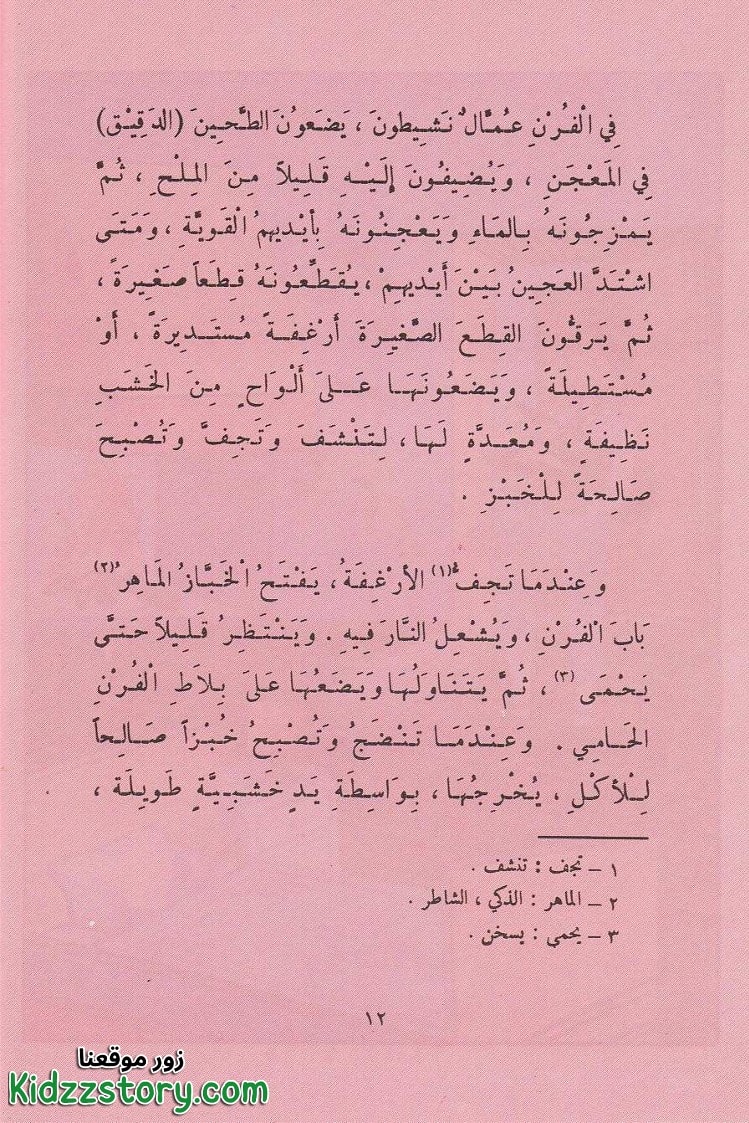 فِي الْفُرْنِ عُمَّالٌ نَشِيطونَ ، يَضَعَوُنَ الطَّحِينَ (الدَقِيْق)
فِي المَعْجَنِ ، وَيُضِيفُونَ إِلَيْهِ قَلِيلاً مِنَ المِلْحِ ، ثُمَّ
يَمْزِجُونَهُ بِالمَاءِ وَيَعْجِنُونَهُ بِأيْديهِمُ الْقَوِيَّةِ ، وَمَتَى
اشْتَدَّ العَجِينُ بَيْنَ أيْدِيهِمْ ، يُقَطِّعُونَهُ قِطَعَاً صَغِيرَةً ،
ثُمَّ يَرِقُّونَ القِطَعَ الصَّغِيرَةَ أرْغِفَةً مُسْتَدِيرَةً ، أَوْ
مُسْتَطِيلَةً ، وَيَضَعُونَهَا عَلىَ أَلْوَاحٍ مِنَ الخَشَبِ
نَظِيفَةٍ ، وَمُعَدَّةٍ لَهَا ، لِتَنْشَفَ وَتَجِفَّ وَتُصْبِحَ
صَالِحَةً لِلْخَبْزِ .
وَعِنْدَمَا تَجِفُّ(١) الأرْغِفَةُ ، يَفْتَحُ الْخَبَّازُ المَاهِرُ(٢)
بَابَ الْفُرْنِ ، وَيُشْعِلُ النَّارَ فِيهِ . وَيَنْتَظِرُ قَلِيلاً حَتَّى
يَحْمَى(٣) ، ثُمَّ يَتَنَاوَلُهَا وَيَضَعُهَا عَلىَ بِلاَطِ الْفُرْنِ
الحَامِي . وَعِنْدَمَا تَنْضَجُ وَتُصْبِحُ خُبْزاً صَالِحاً
لِلْأكْلِ ، يُخْرِجُهَا ، بِوَاسِطَةِ يَدٍ خَشَبِيَّةٍ طَوِيلَة ،
١ – تجف : تنشف .
٢ – الماهر : الذكي ، الشاطر .
٣ – يحمى : يسخن .
١٢
زور موقعنا
Kidzzstory.com